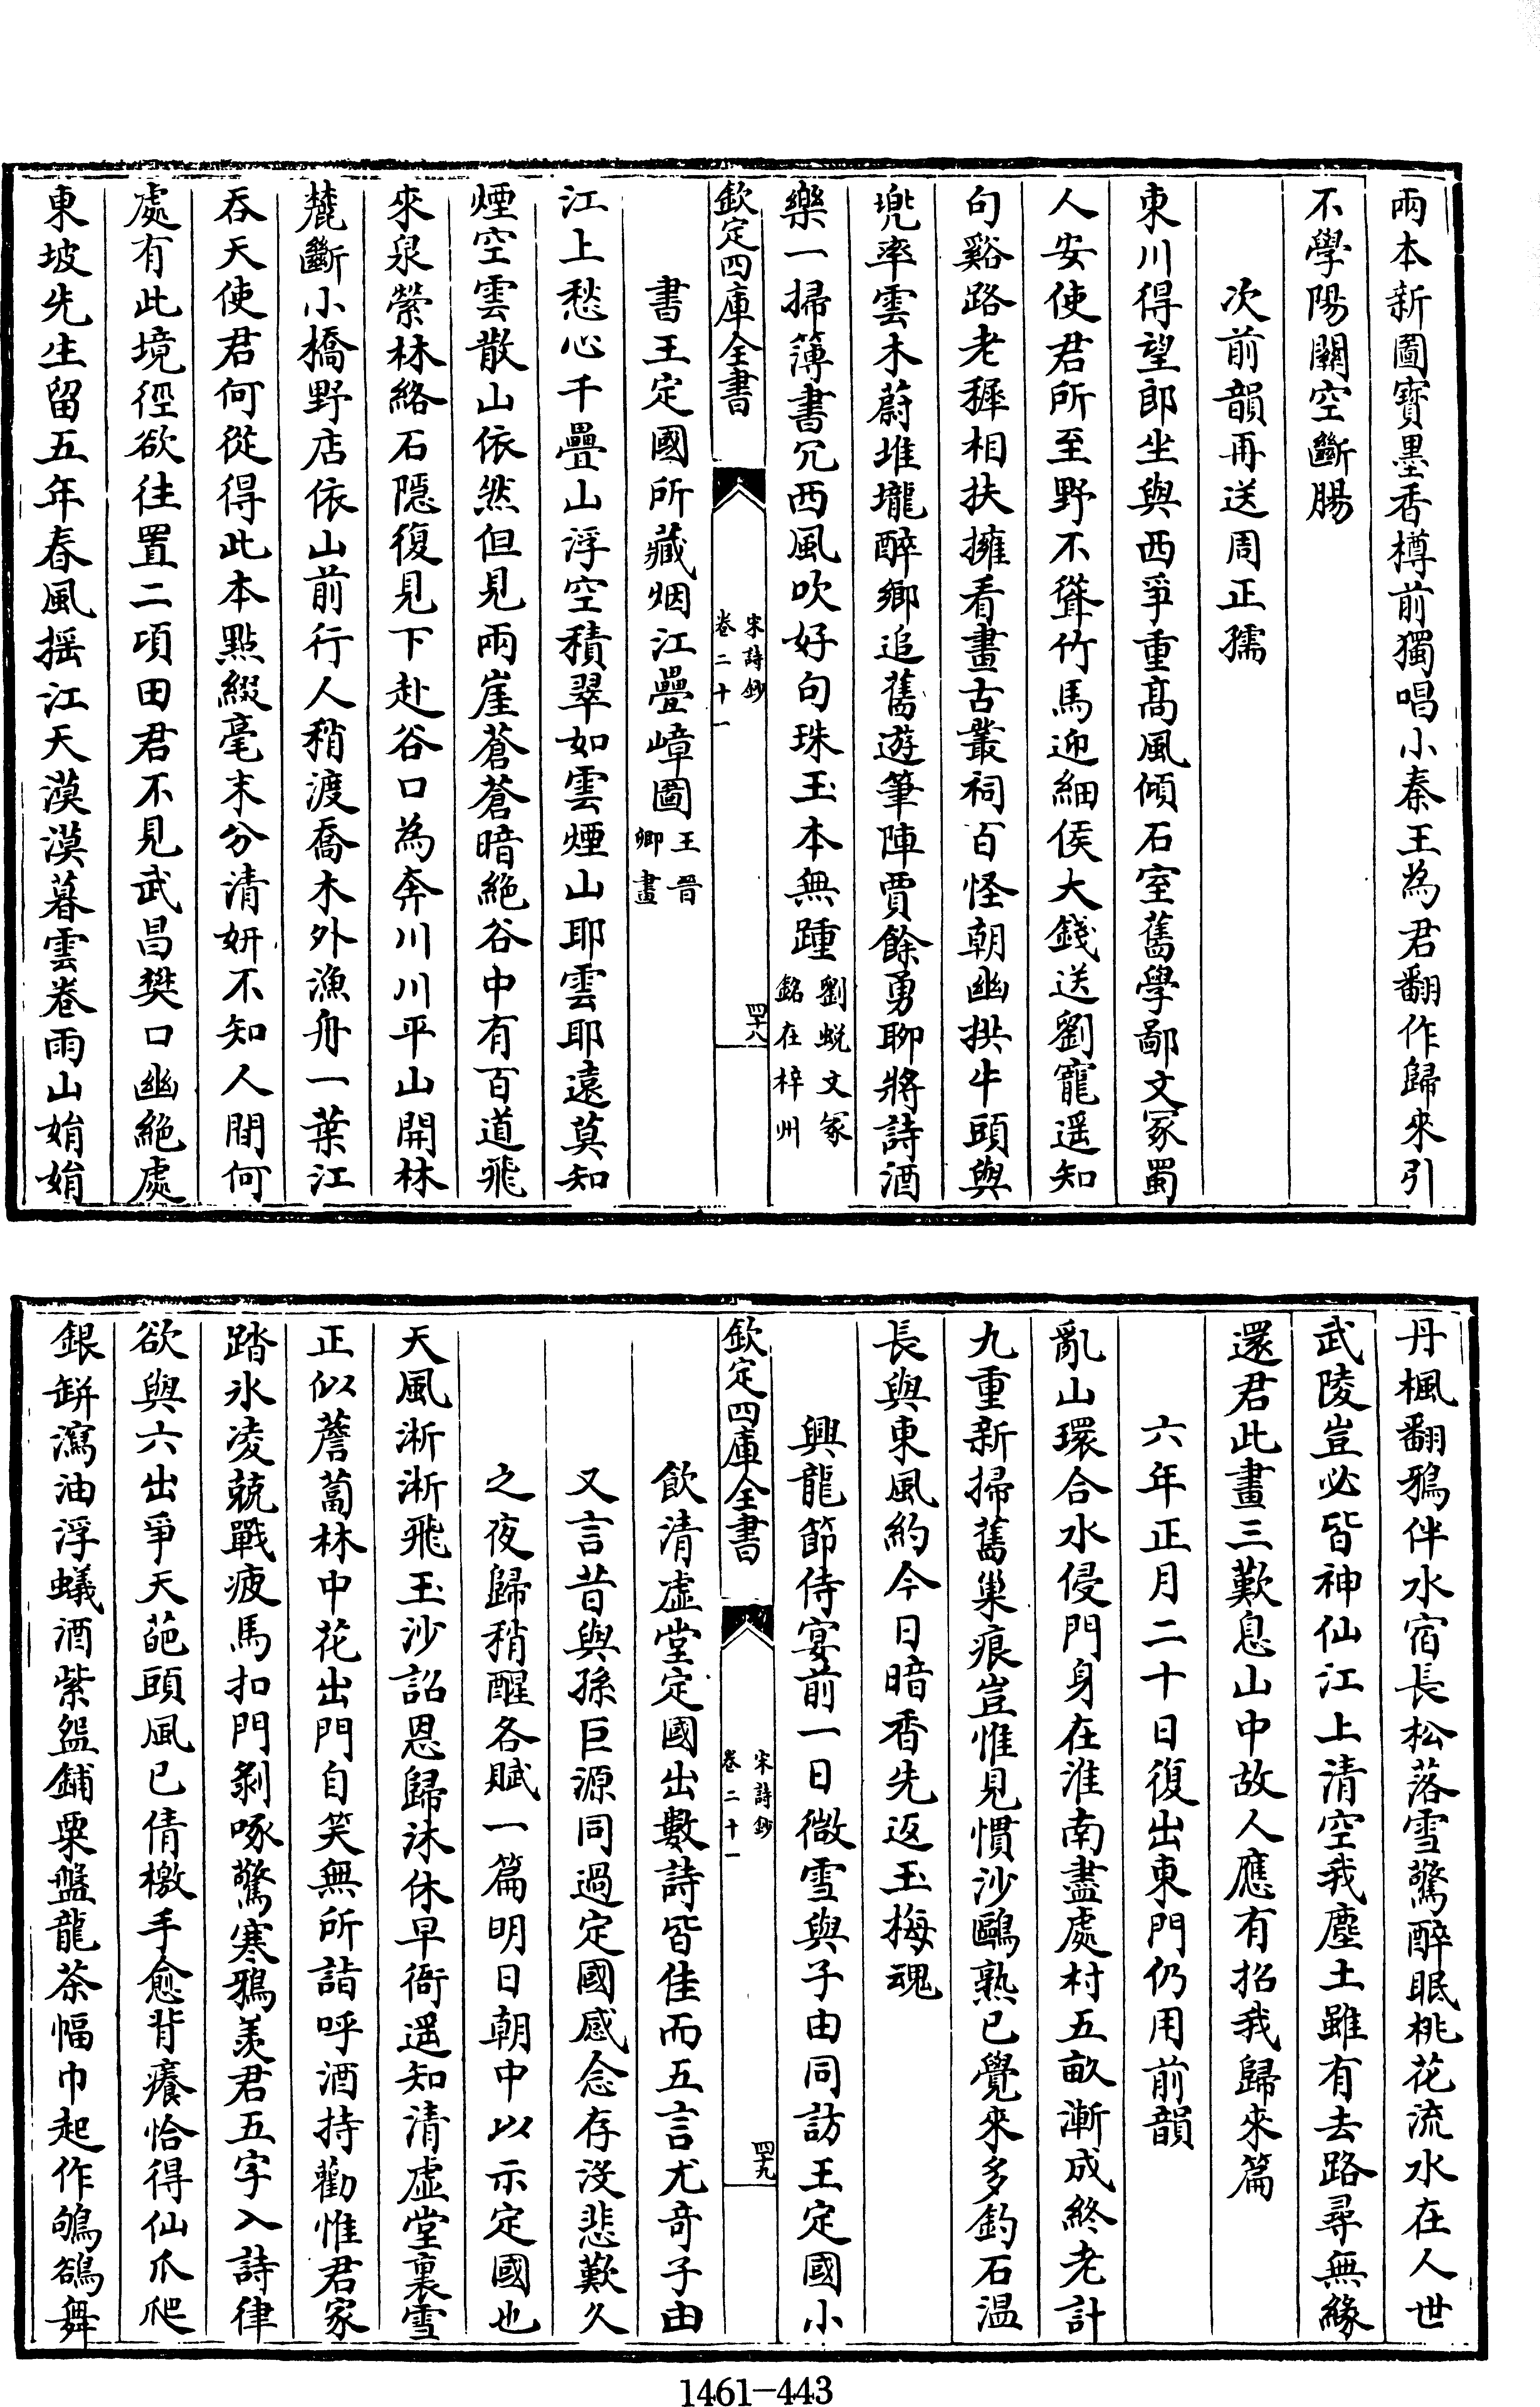 兩本新圖寶墨香樽前獨唱小秦王為君翻作歸來引
不學陽關空斷腸
次前韻再送周正孺
東川得望郎坐與西爭重髙風傾石室舊學鄙文冢蜀
人安使君所至野不聳竹馬迎細侯大錢送劉寵遥知
句谿路老穉相扶擁看畫古叢祠百怪朝幽拱牛頭與
兜率雲木蔚堆壠醉鄉追舊遊筆陣賈餘勇聊將詩酒
樂一掃簿書冗西風吹好句珠玉本無踵劉蜕文冢銘在梓州
欽定四庫全書
宋詩鈔
卷二十一
四十八
書王定國所藏烟江疊嶂圖王晉卿畫
江上愁心千疊山浮空積翠如雲煙山耶雲耶遠莫知
煙空雲散山依然但見兩崖蒼蒼暗絶谷中有百道飛
來泉縈林絡石隠復見下赴谷口為奔川川平山開林
麓斷小橋野店依山前行人稍渡喬木外漁舟一葉江
吞天使君何從得此本點綴毫末分清妍不知人間何
處有此境徑欲往置二項田君不見武昌樊口幽絶處
東坡先生留五年春風揺江天漠漠暮雲卷雨山娟娟
丹楓翻鴉伴水宿長松落雪驚醉眠桃花流水在人世
武陵豈必皆神仙江上清空我塵土雖有去路尋無緣
還君此畫三歎息山中故人應有招我歸來篇
六年正月二十日復出東門仍用前韻
亂山環合水侵門身在淮南盡處村五畝漸成終老計
九重新掃舊巢痕豈惟見慣沙鷗熟已覺來多釣石温
長與東風約今日暗香先返玉梅魂
興龍節侍宴前一日微雪與子由同訪王定國小
欽定四庫全書
宋詩鈔
卷二十一
四十九
飲清虚堂定國出數詩皆佳而五言尤奇子由
又言昔與孫巨源同過定國感念存沒悲歎久
之夜歸稍醒各賦一篇明日朝中以示定國也
天風淅淅飛玉沙詔恩歸沐休早衙遥知清虚堂裏雪
正似薝蔔林中花出門自笑無所詣呼酒持勸惟君家
踏氷凌兢戰疲馬扣門剝啄驚寒鴉羡君五字入詩律
欲與六出爭天葩頭風已倩檄手愈背癢恰得仙爪爬
銀缾瀉油浮蟻酒紫盌鋪粟盤龍茶幅巾起作鴝鵒舞
1461-443